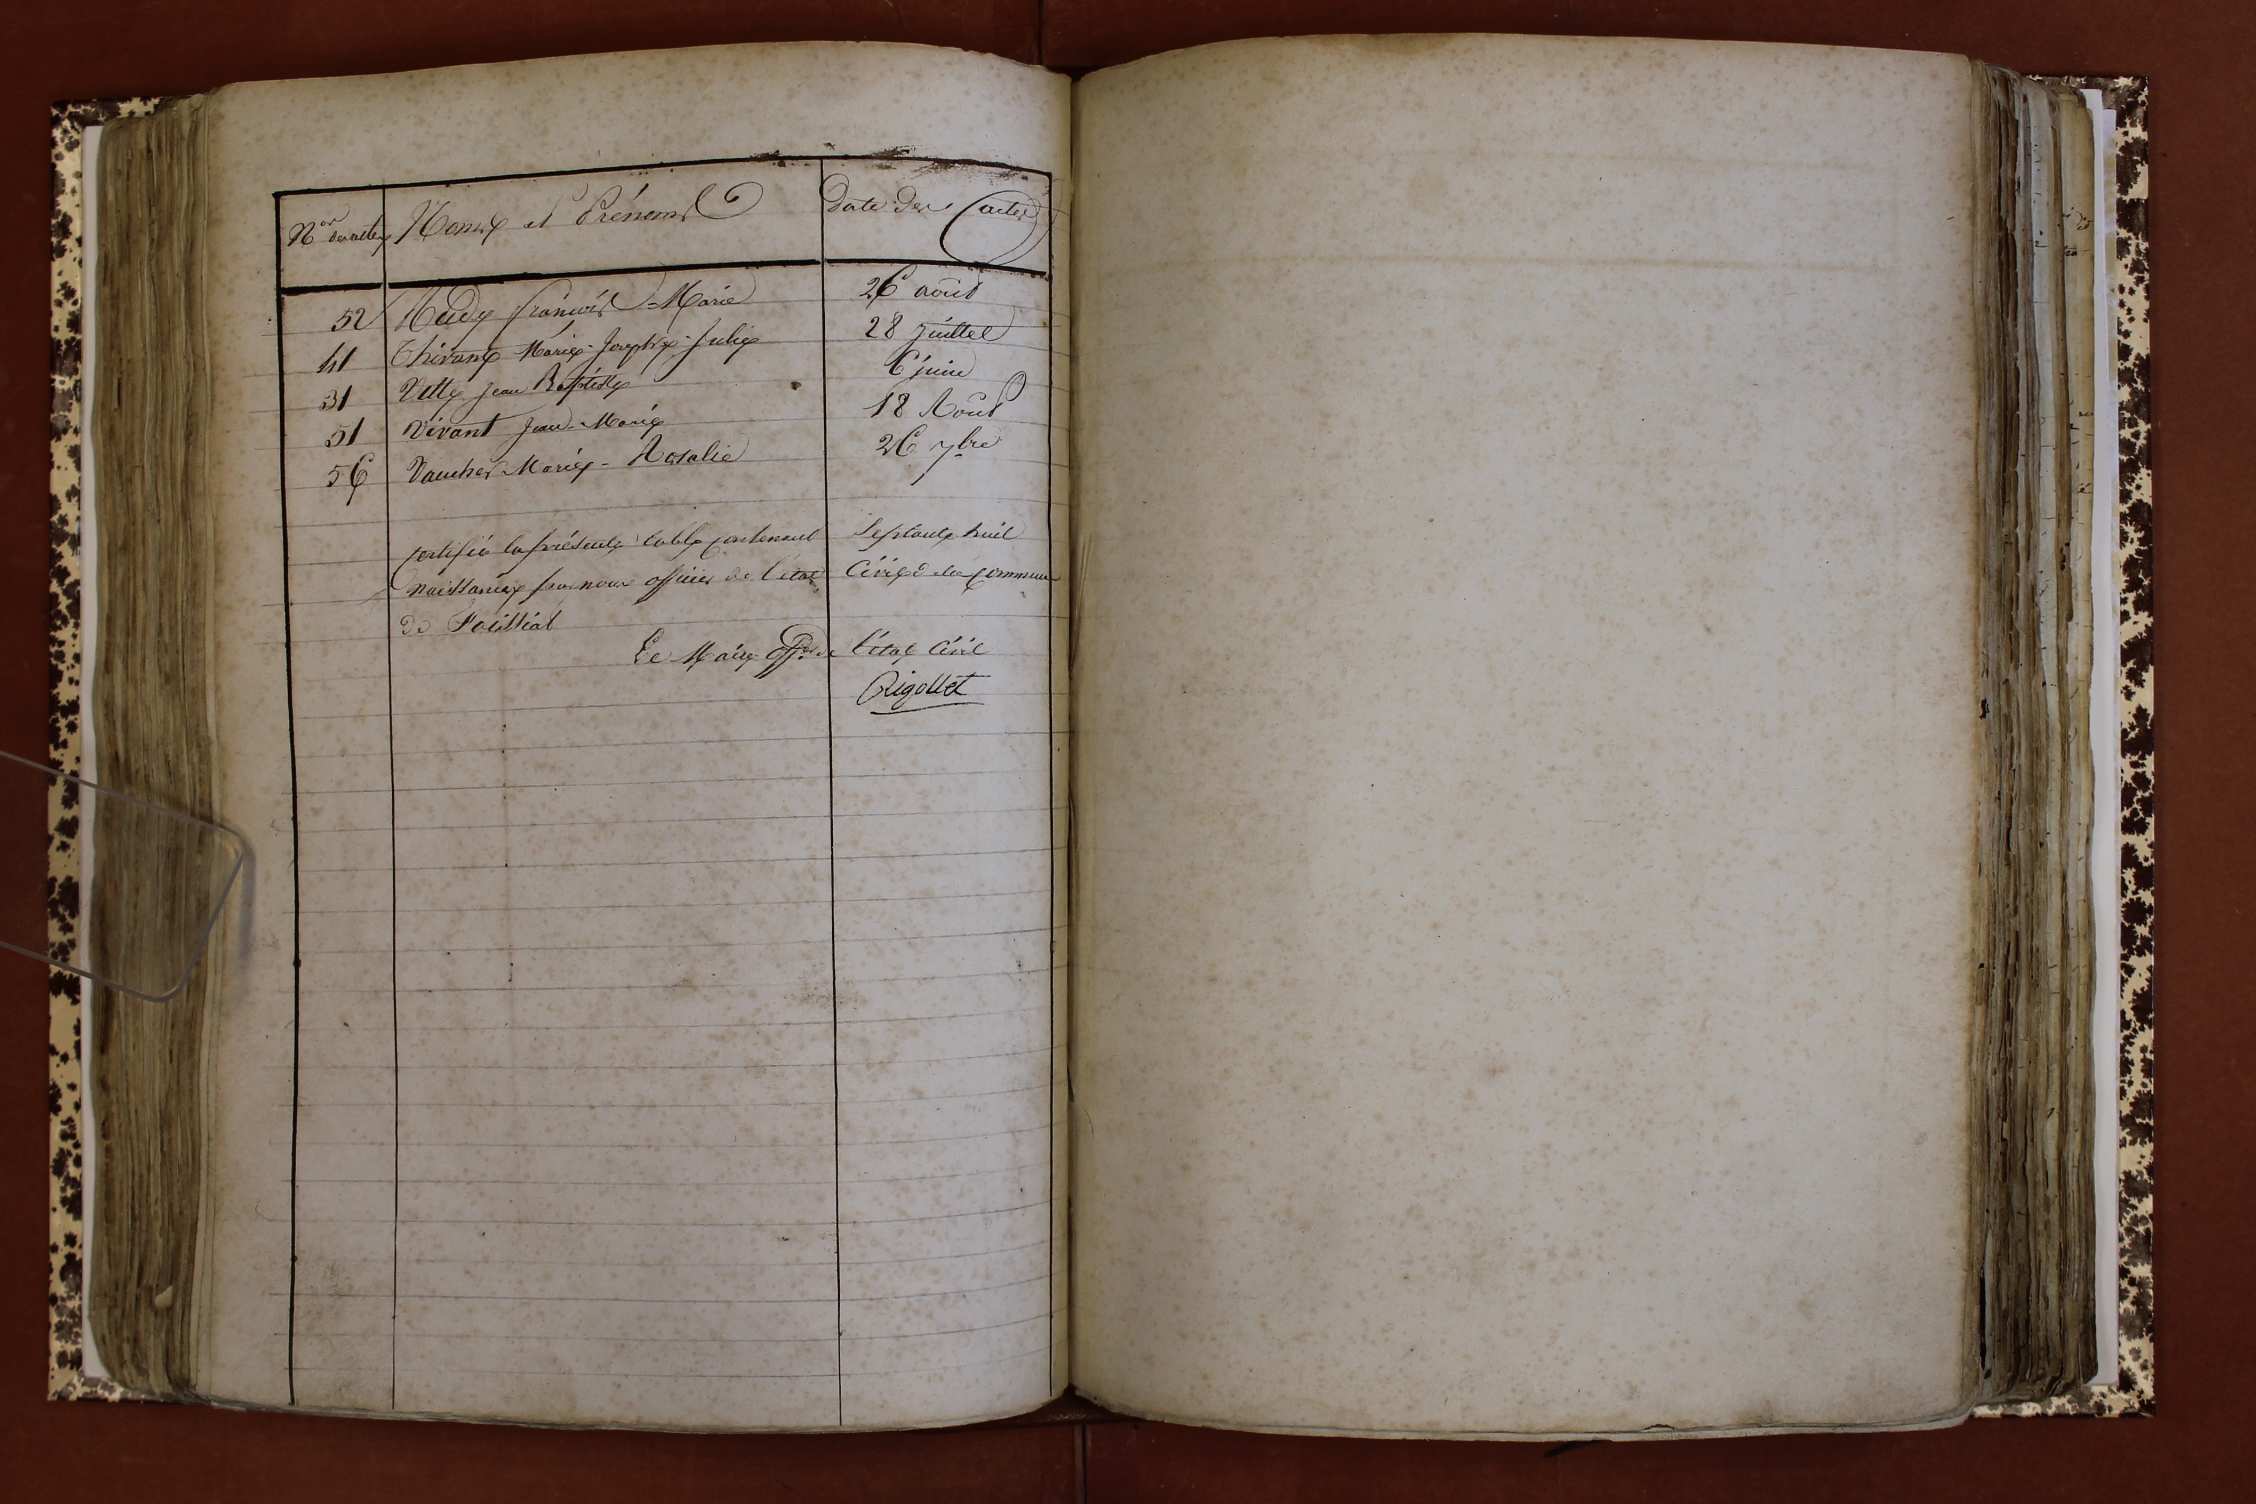 Nos des actes Noms et Prénoms Date des Actes
52 Rudy françois-Marie 26 août
41 Thévany Marie-Josephe-Julie 28 juillet
31 Vitte Jean Baptiste 6 juin
51 Vivant Jean-Marie 18 Août
56 Vaucher Marie-Rosalie 26 7bre
Certifié la présente table contenant septante huit
naissances par nous officier de l'état Civil de la Commune
de
Le Maire offer de l'état Civil
Rigollet